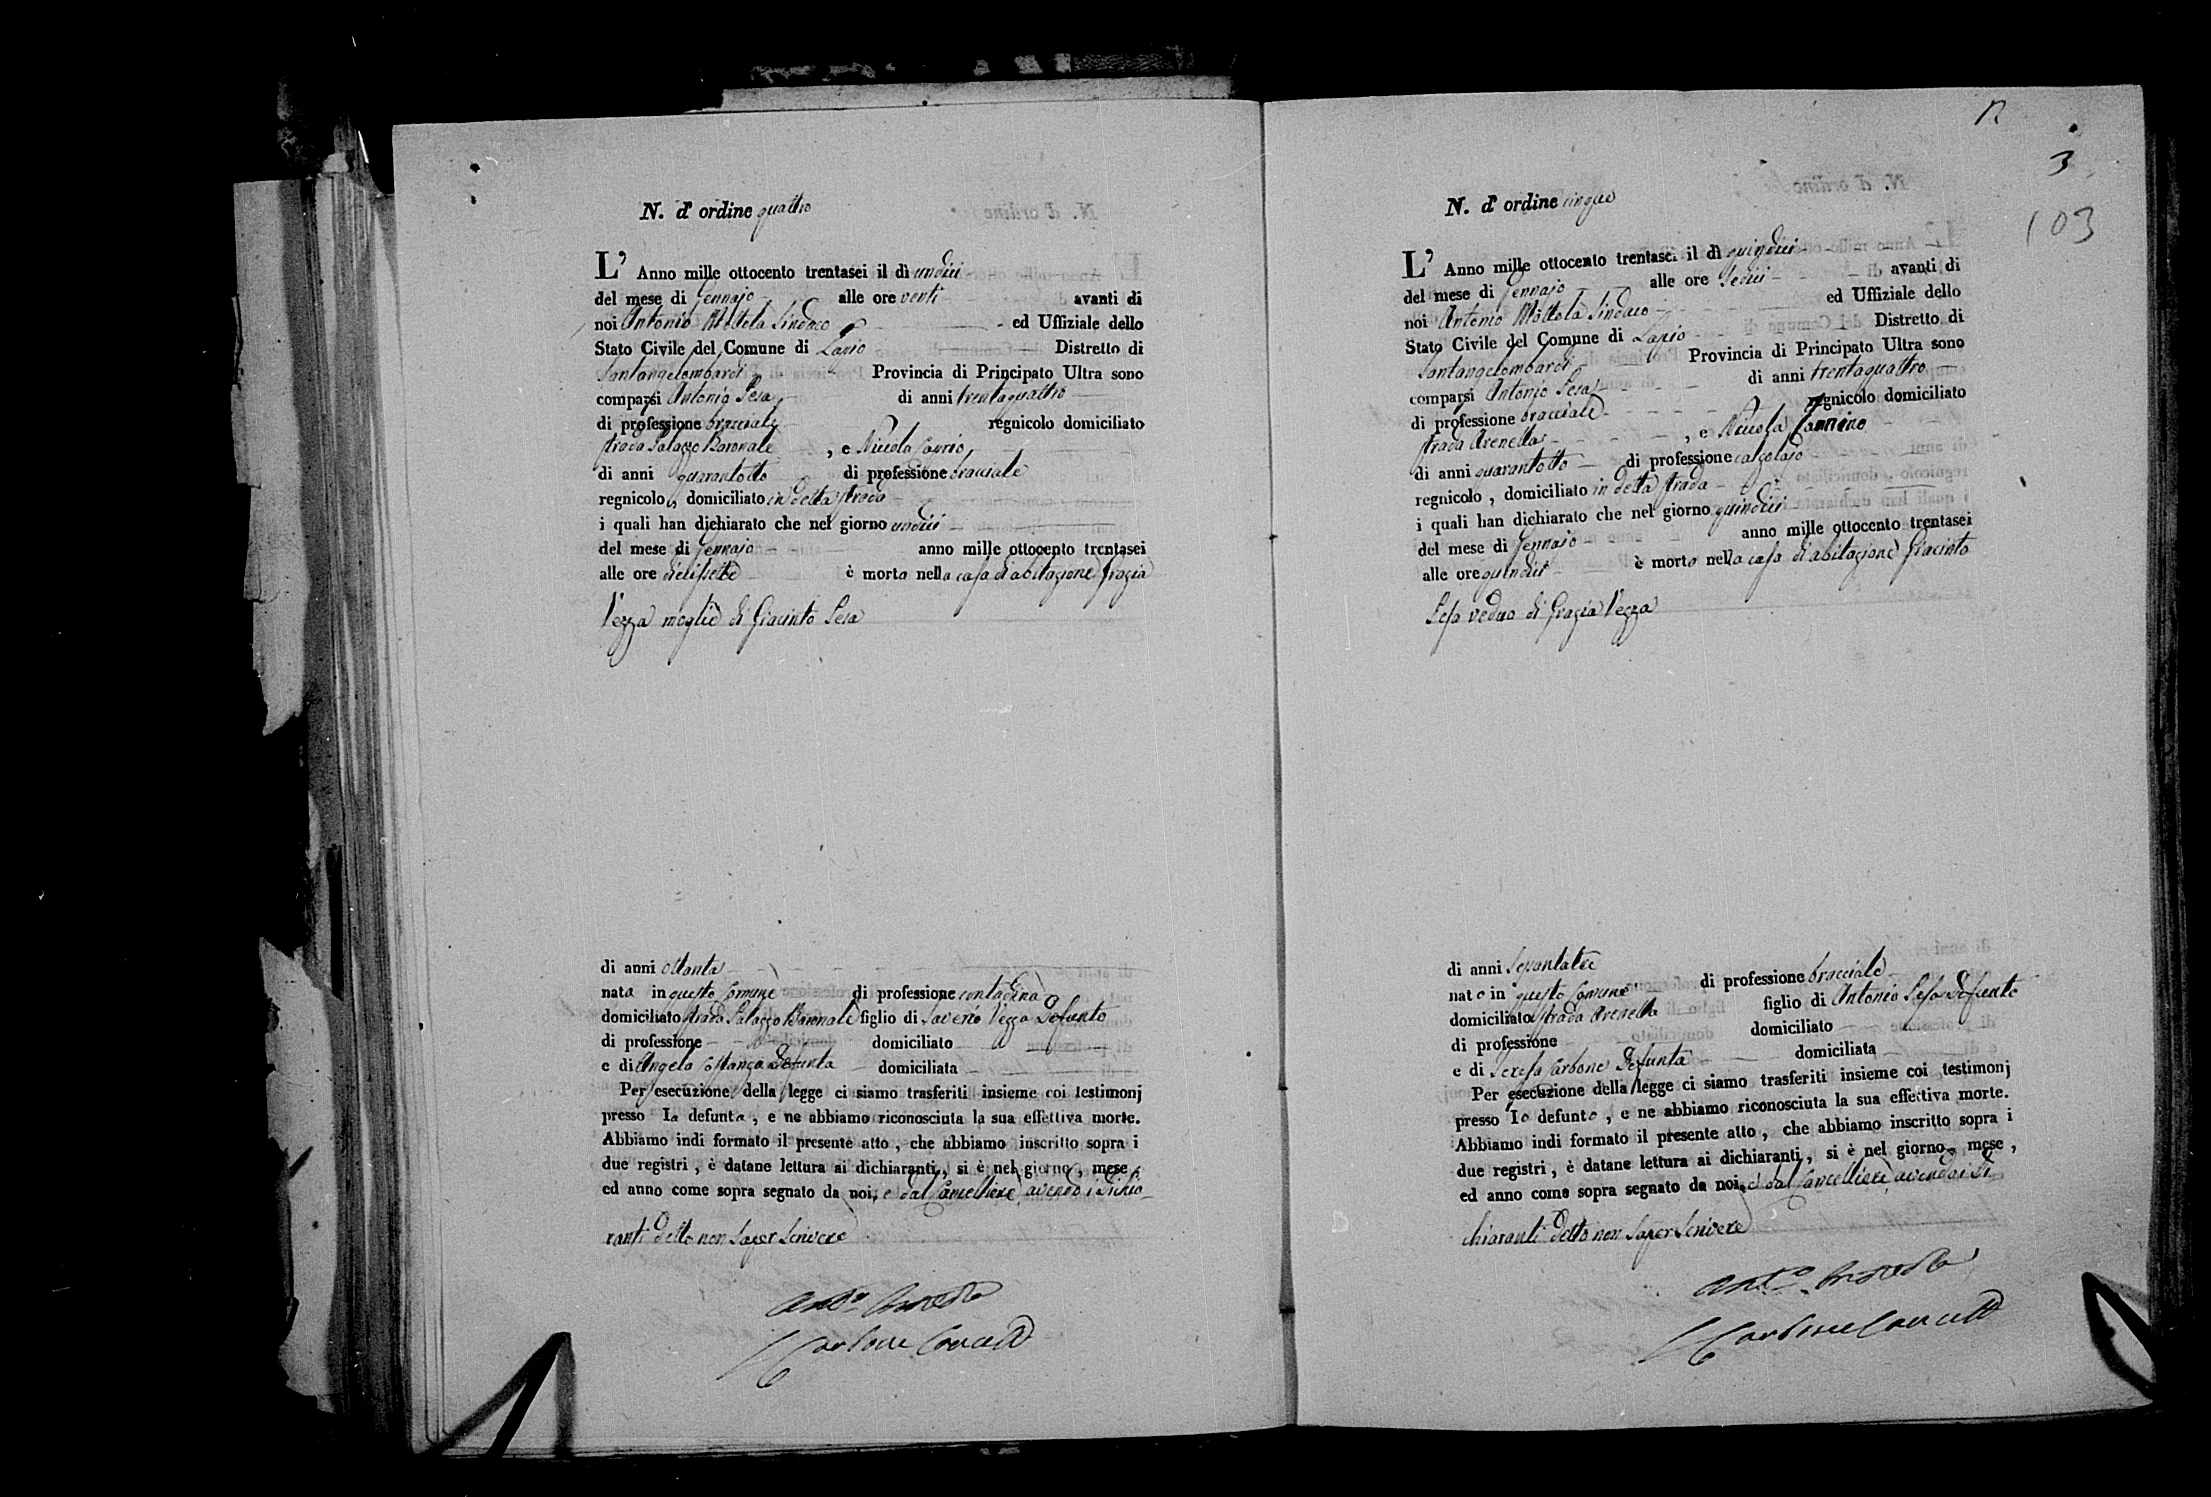 N. d' ordine quattro
L' Anno mille ottocento trentasei il dì undici
del mese di Gennajo alle ore venti avanti di
noi Antonio Mottola Sindaco ed Uffiziale dello
Stato Civile del Comune di Lapio Distretto di
Santangelombardi Provincia di Principato Ultra sono
comparsi Antonio Sesa di anni trentaquattro
di professione bracciale regnicolo domiciliato
strada Palazzo Baronale , e Niccola
di anni quarantotto di professione bracciale
regnicolo, domiciliato in detta strada
i quali han dichiarato che nel giorno undici
del mese di Gennajo anno mille ottocento trentasei
alle ore dicissette è morta nella casa di abitazione Grazia
Vezza moglie di Giacinto Sesa
di anni ottanta
nata in questo Comune di professione contadina
domiciliato strada Palazzo Baronale figlio di Saverio Vezza defunto
di professione domiciliato
e di Angela Costanza defunta domiciliata
Per esecuzione della legge ci siamo trasferiti insieme coi testimonj
presso la defunta , e ne abbiamo riconosciuta la sua effettiva morte.
Abbiamo indi formato il presente atto , che abbiamo inscritto sopra i
due registri , è datane lettura ai dichiaranti, si è nel giorno , mese ,
ed anno come sopra segnato da noi, e dal Cancelliere avendo i dichia-
ranti detto non saper scrivere
Ant.o Mottola
Carbone Canc
12
3
103
N. d' ordine cinque
L' Anno mille ottocento trentasei il dì quindici
del mese di Gennajo alle ore sedici avanti di
noi Antonio Mottola Sindaco ed Uffiziale dello
Stato Civile del Comune di Lapio Distretto di
Santangelombardi Provincia di Principato Ultra sono
comparsi Antonio Sesa di anni trentaquattro
di professione bracciale regnicolo domiciliato
strada Arenella , e Niccola
di anni quarantotto di professione calzolajo
regnicolo , domiciliato in detta strada
i quali han dichiarato che nel giorno quindici
del mese di Gennajo anno mille ottocento trentasei
alle ore quindici è morto nella casa di abitazione Giacinto
Sesa veduo di Grazia Vezza
di anni
nato in questo Comune di professione bracciale
domiciliato strada Arenella figlio di Antonio Sesa defunto
di professione domiciliato
e di Teresa Carbone defunta domiciliata
Per esecuzione della legge ci siamo trasferiti insieme coi testimonj
presso lo defunto , e ne abbiamo riconosciuta la sua effettiva morte.
Abbiamo indi formato il presente atto , che abbiamo inscritto sopra i
due registri , è datane lettura ai dichiaranti, si è nel giorno , mese ,
ed anno come sopra segnato da noi, e dal Cancelliere avendo i di-
chiaranti detto non saper scrivere
Ant.o Mottola
Carbone Canc